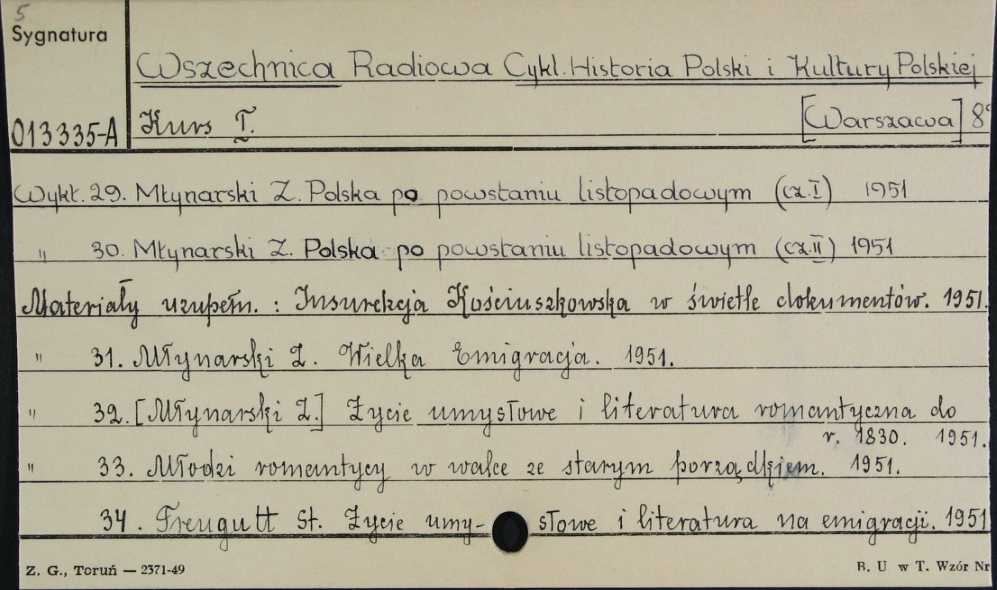 5
Sygnatura
Wszechnica Radiowa Cykl. Historia Polski i Kultury Polskiej
013335-A Kurs I. [Warszawa] 8°
Wykł. 29. Młynarski Z. Polska po powstaniu listopadowym (cz. I) 1951
" 30. Młynarski Z. Polska po powstaniu listopadowym (cz. II) 1951
Materiały uzupełn. : Insurekcja Kościuszkowska w świetle dokumentów. 1951.
" 31. Młynarski Z. Wielka Emigracja. 1951.
" 32. [Młynarski Z.] Życie umysłowe i literatura romantyczna do
r. 1830. 1951.
" 33. Młodzi romantycy w walce ze starym porządkiem. 1951.
34. Freugutt St. Życie umy- słowe i literatura na emigracji. 1951
Z. G., Toruń — 2371-49 B. U w T. Wzór Nr